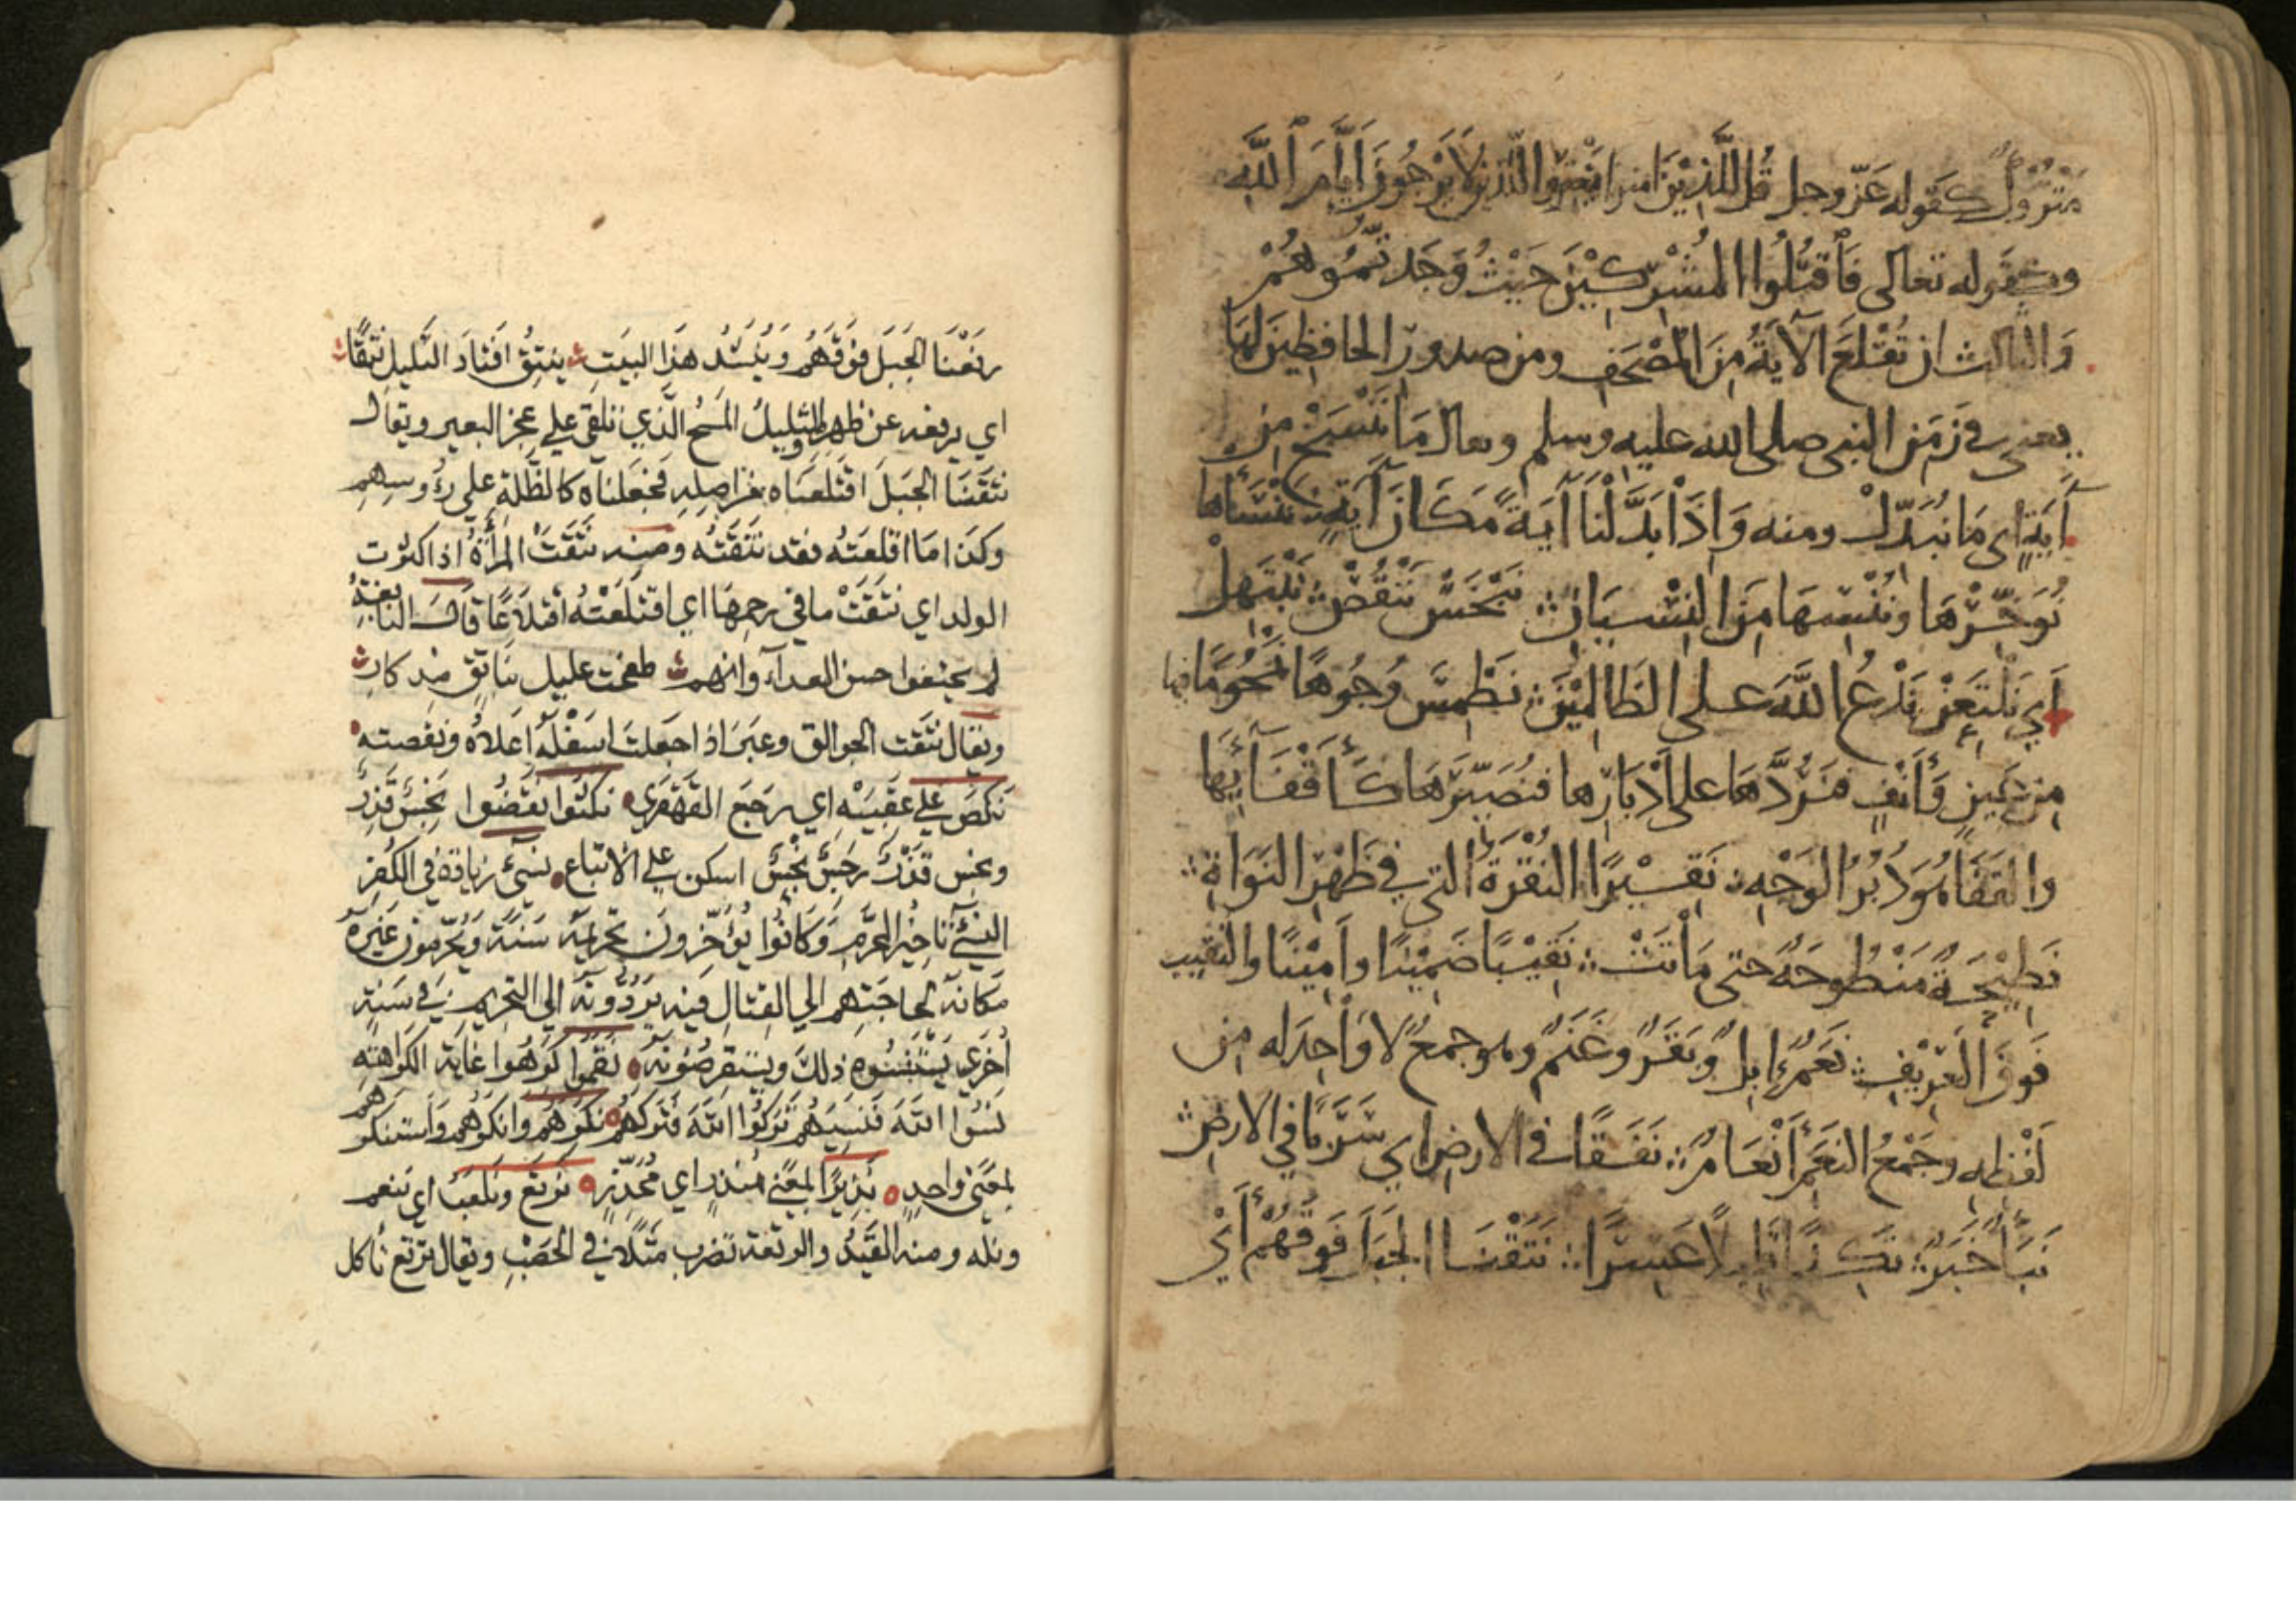 متروك كقوله عَزّ وجل قُل لِلَّذِيْنَ امنوا يَغْفِرُوا للّذين لا يَرْجُونَ أَيَّامَ اللَّه
وكقوله تعالى فَاقْتُلُوا المُشْرِكِيْنَ حَيْثُ وَجَدتُّمُوهُمْ
وَالثالث ان تُقْلَعَ الآيَةُ مِنَ المُصْحَفِ ومن صدور الحافظين لهَا
يعني في زَمَنِ النبي صلى الله عليه وسلم ويقال مَا نَنْسَخْ مِن
آيَةٍ اي مَا نُبَدِّل ومنه وَاِذَا بَدَّلْنَا آيَةً مَكَانَ آيَةٍ ؞ نَنْسَأها
نُؤَخِّرْهَا ونُنْسِهَا مِنَ النِّسْيَانِ ؞ نَبْخَسْ نَنْقُصْ ؞ نَبْتَهِلْ
اَي نَلْتَعِنْ نَدْعُ اللَّهَ على الظَالِمِيْنَ ؞ نَطْمِسَ وُجُوهًا نَمْحُو مَا فيها
مِن عَينٍ وَأَنْفٍ فَنَرُدَّهَا على أَدْبَارِها فنُصَيِّرَهَا كَأَقْفَائِهَا
والقَفَا هُوَ دُبُرُ الوَجْهِ ؞ نَقِيْرًا النُقْرَةُ التي في ظَهْرِ النَوَاةِ ؞
نَطِيْحَةُ مَنْطُوحَةٌ حتى مَاتَتْ ؞ نَقِيْبًا ضَمِيْنًا واَمِيْنًا والنقيب
فَوقَ العَرِيْفِ ؞ نَعَمٌ اِبِلٌ وَبَقَرٌ وغَنَمٌ وهو جمعٌ لا وَاحِدَ له مِن
لَفْظِهِ وجَمْعُ النَعَمِ أَنْعَامٌ ؞ نَفَقًا في الارضِ اي سَرَبًا في الارض
نَبَأٌ خَبَرٌ ؞ نَكِدًا قَلِيلًا عَسِرًا ؞ نَتَقْنَا الجَبَلَ فَوقَهُمْ أَيْ
رفَعْنَا الجَبَلَ فَوْقَهُم ويُنْشَدُ هذا البيَت ينتِقُ اقتادَ الشليل نتقًا
اي يرفعه عن ظهره والشليلُ المَسْحُ الَّذي يلقى على عجز البعير ويقال
نتَقنَا الجبَلَ اقتَلَعنَاه من اصلِهِ فجَعَلناه كالظُّلةِ على رُؤوسِهِم
وكذا ما اقلعتُه فقد نتَقتُه ومنه نتَقَت المرأةُ اذا اكثرت
الولد اي نتَقَتْ ما في رحِمِهَا اي اقتلَعَتْهُ اقتلاعًا قال النابغةُ
لم يحنفوا حسن الغداء وامهم طفحت عليك بنَاتِقٍ مذكار
ويقال نتَقت الجوالق وغيرَه اذا جعلت اسفلَه اعلاه ونفضته
نكَصَ على عَقِبَيْه اي رجَعَ القَهقَرى نكثوا نقضُوا نَجَسٌ قَذَرٌ
ونجس قذرٌ رِجسٌ نجسٌ اسكن على الاتباع نسىءُ زيادة في الكُفرِ
النسىءُ تاخير المحرَّم وَكانُوا يُؤخّرون تحريمَه سَنَة ويُحرّمون غيرَه
مكَانه لحاجَتِهِم الي القِتالِ فيه يَردُّونه الي التحريم في سنةٍ
اخرى يَسْتَنسِئوه ذلك ويستَقرِضُونَه نقموا كرهُوا غاية الكراهة
نَسُوا اللهَ فنَسِيَهُم تَركُوا اللهَ فتَركَهُم نكرَهُم وانكرهُم واستنكرهم
بمعنى واحدٍ نذِيرًا بمعنى مُنذرٍ اي مُحَذّرٍ نرتَع ونلعب اي ننعم
ونله ومنه القَيدُ والرتعة تضرب مثلًا في الخَصْبِ ويقال نرتع نأكل